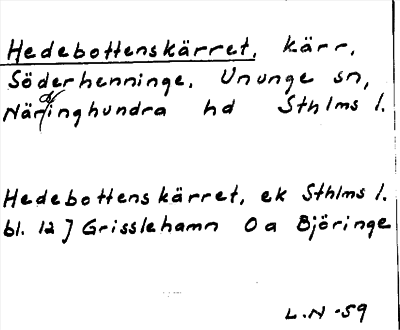 Hedebottenskärret, kärr,
Söderhenninge, Ununge sn,
Närdinghundra hd Sthlms l.
Hedebottenskärret, ek Sthlms l.
bl. 12 J Grisslehamn Oa Björinge
L.N -59